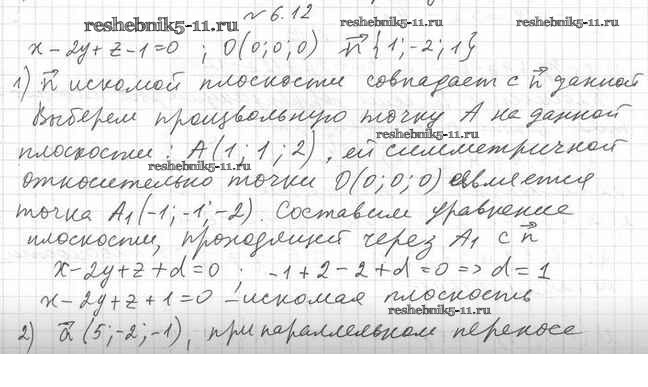 № 6.12
reshebnik5-11.ru reshebnik5-11.ru reshebnik5-11.ru
x - 2y + z - 1 = 0 ; O(0;0;0) n⃗{1;-2;1}
1) n⃗ искомой плоскости совпадает с n⃗ данной
Выберем произвольную точку A на данной
reshebnik5-11.ru
плоскости: A(1;1;2), ей симметричной
reshebnik5-11.ru
относительно точки O(0;0;0) является
точка A₁(-1;-1;-2). Составим уравнение
плоскости, проходящей через A₁ с n⃗
x - 2y + z + d = 0 ; -1 + 2 - 2 + d = 0 => d = 1
x - 2y + z + 1 = 0 - искомая плоскость
reshebnik5-11.ru
2) a⃗(5;-2;-1), при параллельном переносе